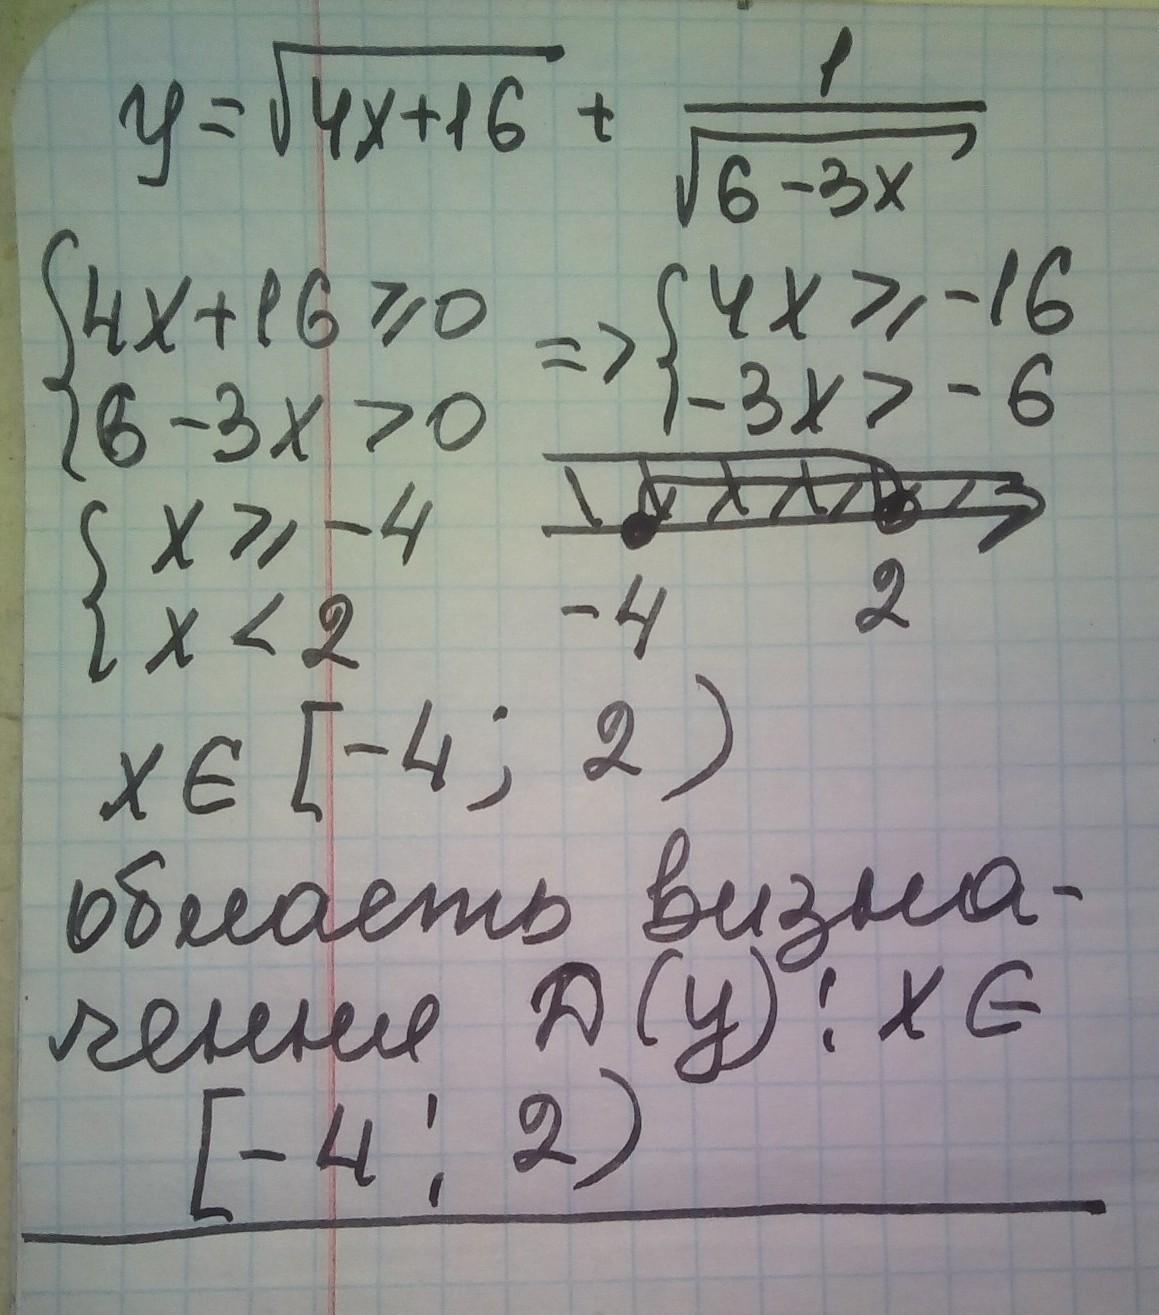 y = √(4x+16) + 1/√(6-3x)
{4x+16 ⩾ 0 => {4x ⩾ -16
{6-3x > 0 {-3x > -6
{x ⩾ -4
{x < 2
-4 2
x ∈ [-4; 2)
область визна-
чення D(y): x ∈
[-4; 2)